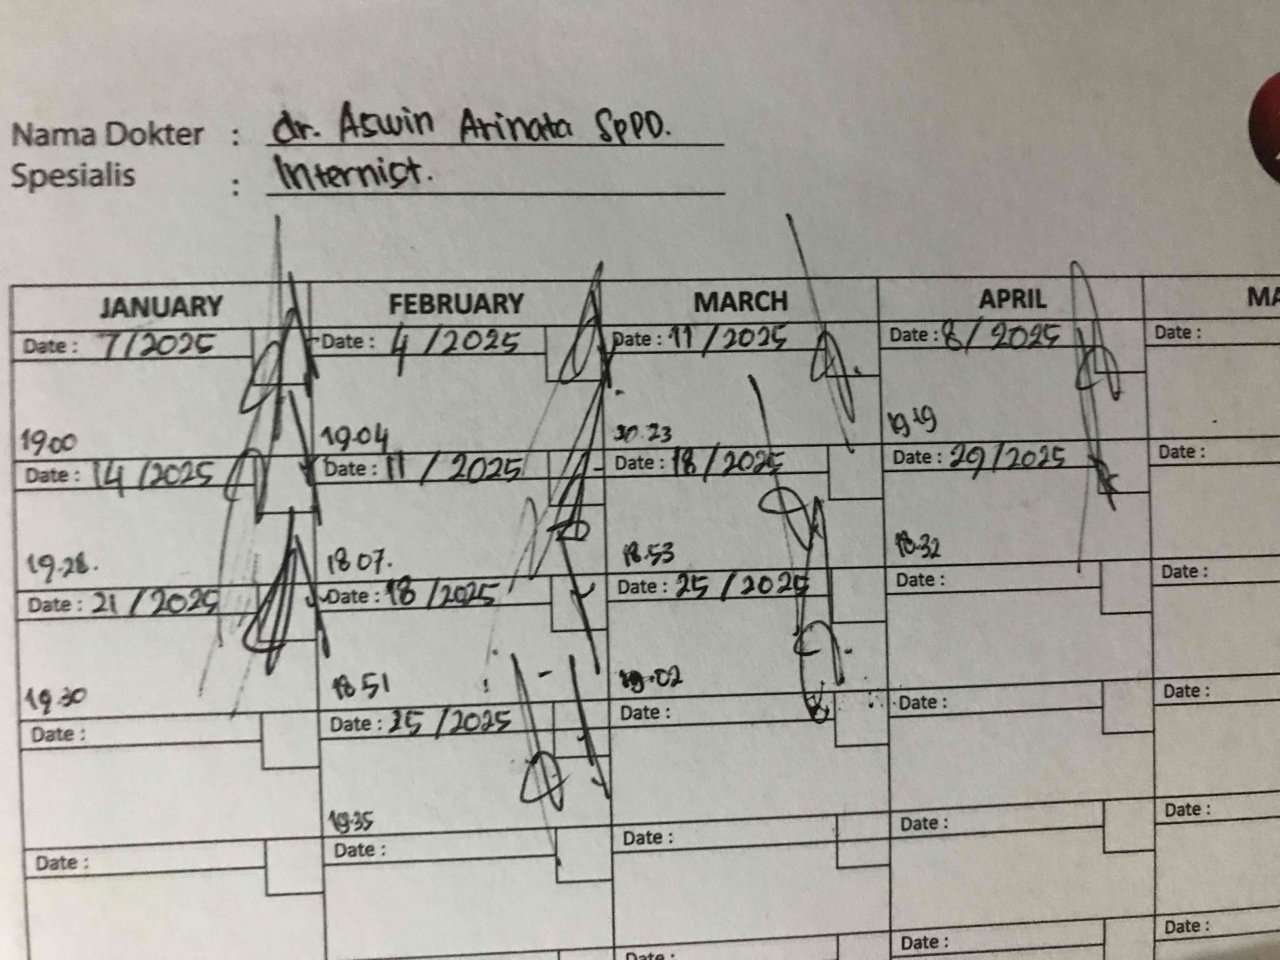 Nama Dokter : dr. Aswin Arinata SpPD.
Spesialis : Internist.
JANUARY FEBRUARY MARCH APRIL MA
Date : 7/2025 Date : 4/2025 Date : 11/2025 Date : 8/2025 Date :
19.00 19.04 19.19
Date : 14/2025 Date : 11/2025 Date : 18/2025 Date : 29/2025 Date :
19.28. 18.07. 18.53 18.32
Date : 21/2025 Date : 18/2025 Date : 25/2025 Date : Date :
19.30 18.51 19.02
Date : Date : 25/2025 Date : Date : Date :
19.35
Date : Date : Date : Date : Date :
Date : Date : Date :